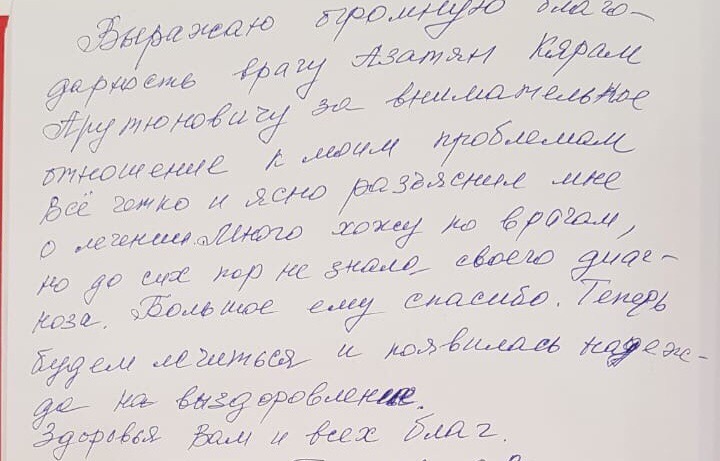 Выражаю огромную благо-
дарность врачу Азатян Кярам
Арутюновичу за внимательное
отношение к моим проблемам
Всё четко и ясно разъяснил мне
о лечении. Много хожу по врачам,
но до сих пор не знала своего диаг-
ноза. Большое ему спасибо. Теперь
будем лечиться и появилась надеж-
да на выздоровление.
Здоровья Вам и всех благ.